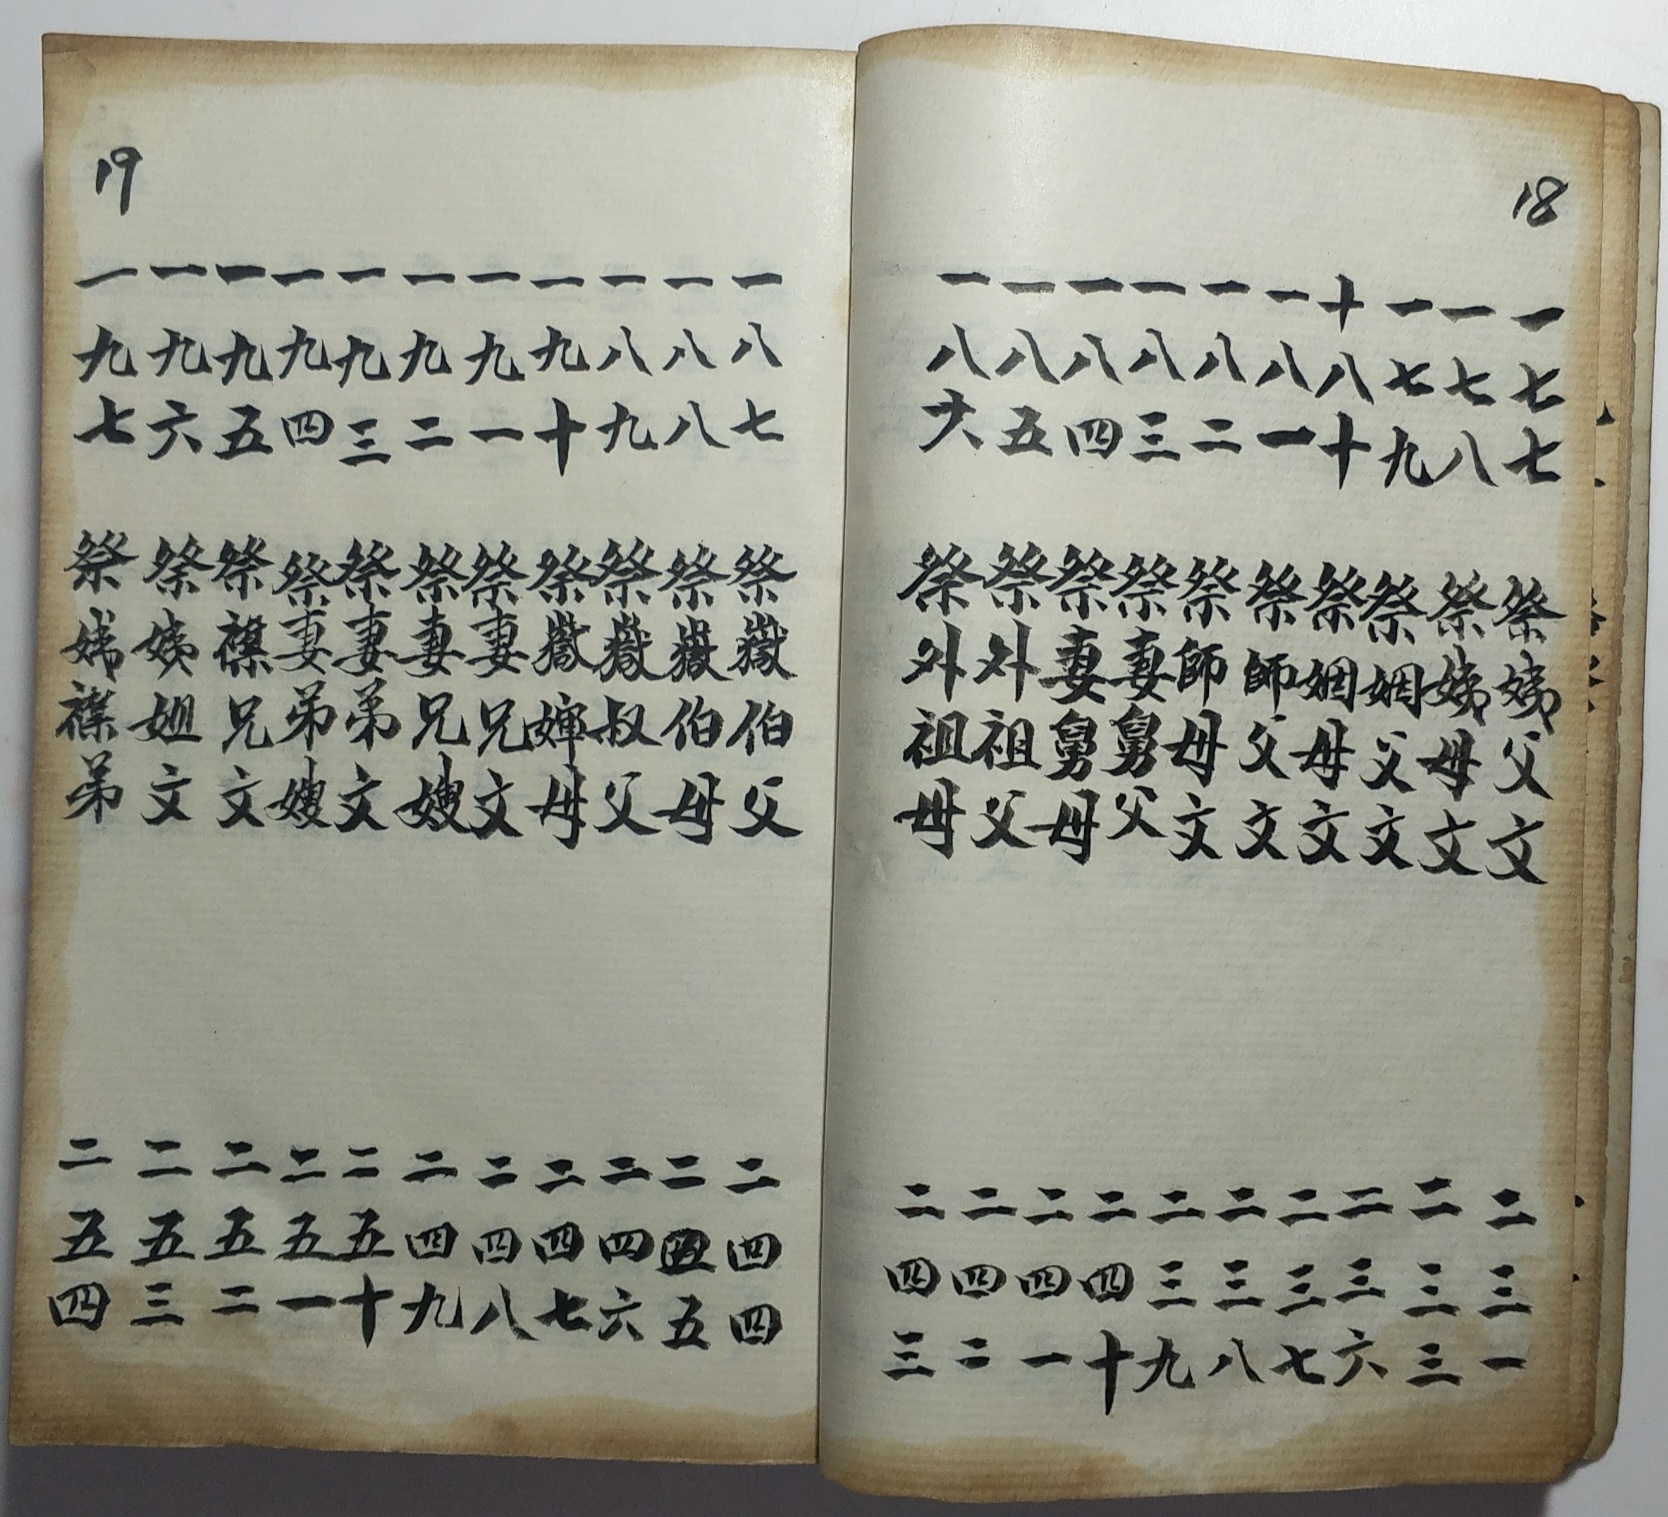 18
一七七 祭姨父文 二三一
一七八 祭姨母文 二三三
一七九 祭姻父文 二三六
十八十 祭姻母文 二三七
一八一 祭師父文 二三八
一八二 祭師母文 二三九
一八三 祭妻舅父 二四十
一八四 祭妻舅母 二四一
一八五 祭外祖父 二四二
一八六 祭外祖母 二四三
19
一八七 祭嶽伯父 二四四
一八八 祭嶽伯母 二四五
一八九 祭嶽叔父 二四六
一九十 祭嶽嬸母 二四七
一九一 祭妻兄文 二四八
一九二 祭妻兄嫂 二四九
一九三 祭妻弟文 二五十
一九四 祭妻弟嫂 二五一
一九五 祭襟兄文 二五二
一九六 祭姨姐文 二五三
一九七 祭姊襟弟 二五四